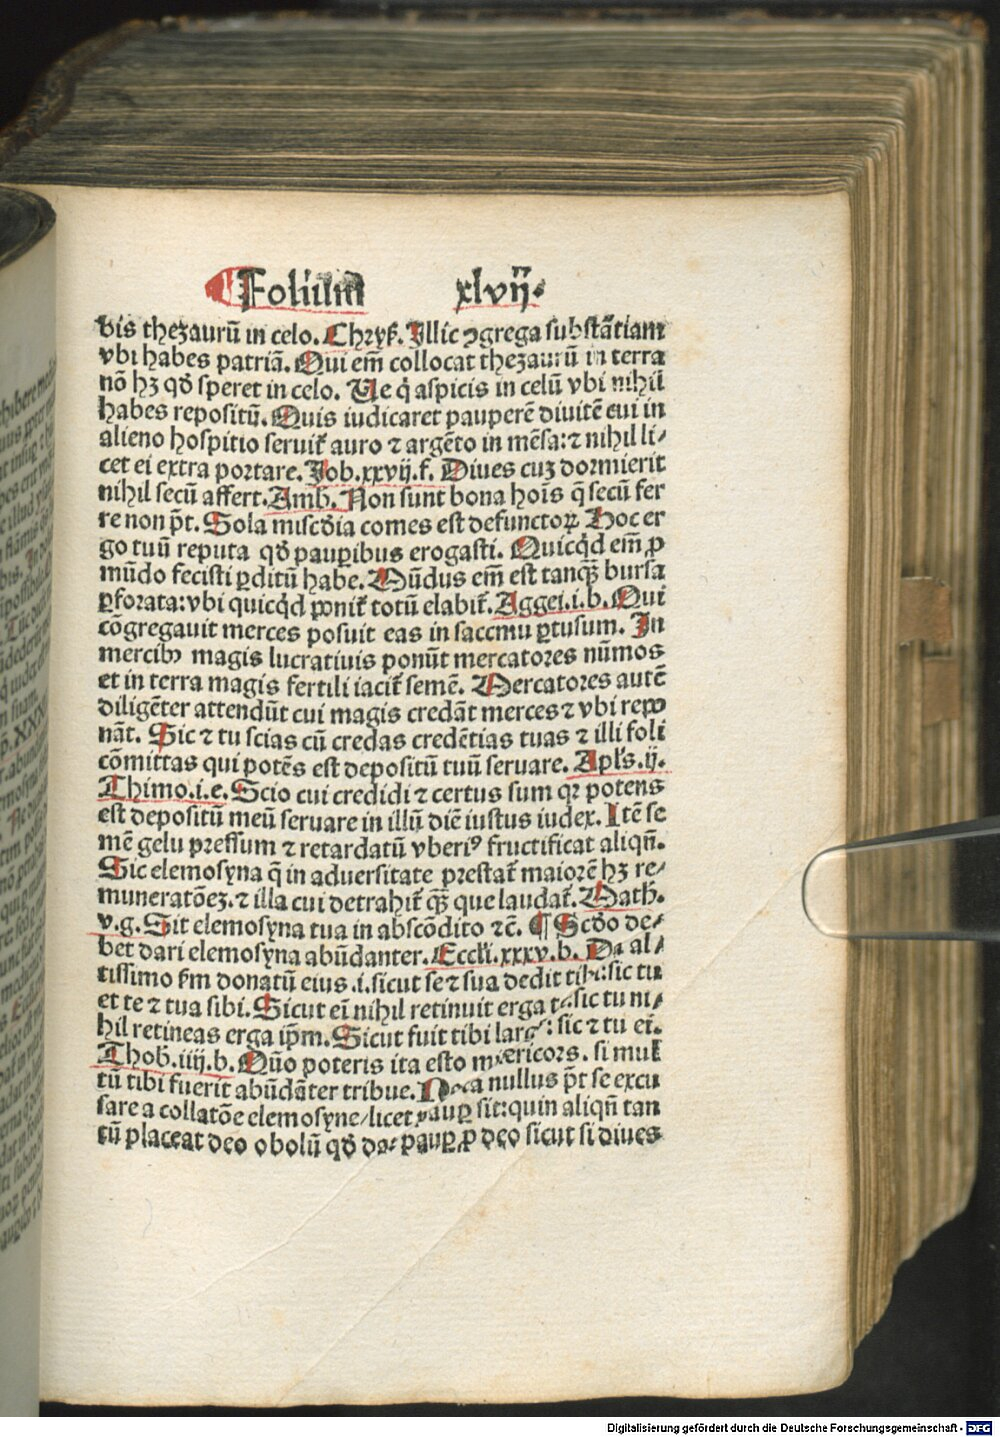 Folium xlvij.
bis thezaurū in celo. Chryſ. Illic ꝯgrega ſubſtātiam
vbi habes patriā. Qui em̄ collocat thezaurū in terra
nō hꝫ qd̄ ſperet in celo. Ue q̇ aſpicis in celū vbi nihil
habes repoſitū. Quis iudicaret pauperē diuitē eui in
alieno hoſpitio ſeruit̄ auro ⁊ argēto in mēſa:⁊ nihil li⸗
cet ei extra portare. Job.xxvij.f. Diues cuꝫ dormierit
nihil ſecū affert. Amb. Non ſunt bona hoīs q̄ ſecū fer
re non p̄t. Sola miſcd̄ia comes eſt defunctoꝝ Hoc er
go tuū reputa qd̄ pauꝑibus erogaſti. Quicq̇d em̄ ꝓ
mūdo feciſti ꝑditū habe. Mūdus em̄ eſt tanqꝫ̄ burſa
ꝑforata:vbi quicq̇d ponit̄ totū elabit̄. Aggei.i.b. Qui
cōgregauit merces poſuit eas in ſaccmu ꝑtuſum. In
mercibꝰ magis lucratiuis ponūt mercatores nūmos
et in terra magis fertili iacit̄ ſemē. Mercatores autē
diligēter attendūt cui magis credāt merces ⁊ vbi repo
nāt. Sic ⁊ tu ſcias cū credas credētias tuas ⁊ illi ſoli
cōmittas qui potēs eſt depoſitū tuū ſeruare. Apl's.ij.
Thimo.i.e. Scio cui credidi ⁊ certus ſum qꝛ potens
eſt depoſitū meū ſeruare in illū diē iuſtus iudex. Itē ſe
mē gelu preſſum ⁊ retardatū vberiꝰ fructificat aliqn̄.
Sic elemoſyna q̄ in aduerſitate preſtat̄ maiorē hꝫ re⸗
muneratōeꝫ. ⁊ illa cui detrahit̄ qꝫ̄ que laudat̄. Math.
v.g. Sit elemoſyna tua in abſcōdito ⁊c̄. ¶ Scd̄o de⸗
bet dari elemoſyna abūdanter. Eccl'i.xxxv.b. Da al⸗
tiſſimo ſm̄ donatū eius .i. ſicut ſe ⁊ ſua dedit tibi:ſic tu
et te ⁊ tua ſibi. Sicut ei nihil retinuit erga te ſic tu ni⸗
hil retineas erga ip̄m. Sicut fuit tibi larg⁹: ſic ⁊ tu ei.
Thob.iiij.b. Quō poteris ita eſto miſericors. ſi mul
tū tibi fuerit abūdāter tribue. Nota nullus p̄t ſe excu
ſare a collatōe elemoſyne/licet pauꝑ ſit:quin aliqn̄ tan
tū placeat deo obolū qd̄ dat pauꝑ ꝓ deo ſicut ſi diues
Digitalisierung gefördert durch die Deutsche Forschungsgemeinschaft - DFG